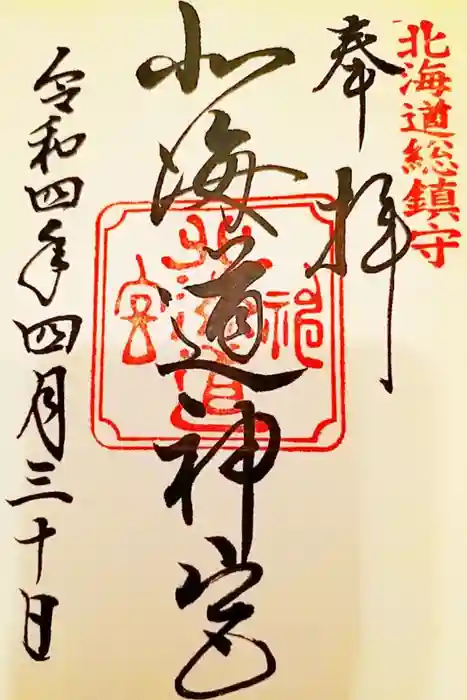 北海道総鎮守
奉拝
北海道神宮
北海道
神
宮
令和四年四月三十日